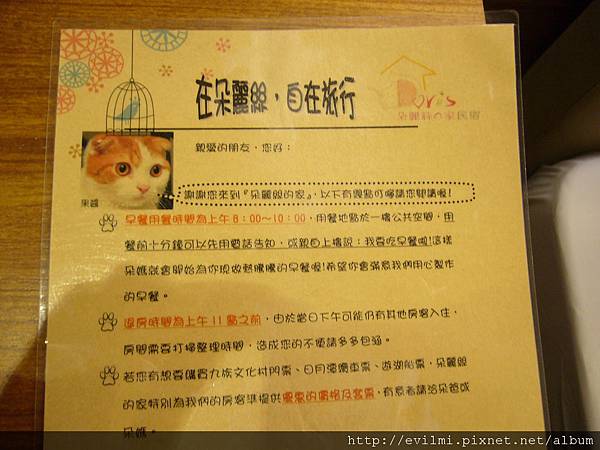 在朵麗絲，自在旅行
Doris
親愛的朋友，您好：
果醬
謝謝您來到『朵麗絲的家』，以下有幾點叮嚀請您閱讀喔！
早餐用餐時間為上午8：00～10：00，用餐地點於一樓公共空間，由
餐前十分鐘可以先用電話告知，或親自上樓說：我要吃早餐啦！這樣
朵媽就會開始為你現做熱騰騰的早餐喔！希望你會滿意我們用心製作
的早餐。
退房時間為上午11點之前，由於當日下午可能仍有其他房客入住，
房間需要打掃整理時間，造成您的不便請多多包涵。
若您有想要購買九族文化村門票、日月潭纜車票、遊湖船票，朵麗絲
的家特別為我們的房客準提供優惠的價格及套票，有意者請給朵爸或
朵媽。
http://evilmi.pixnet.net/album